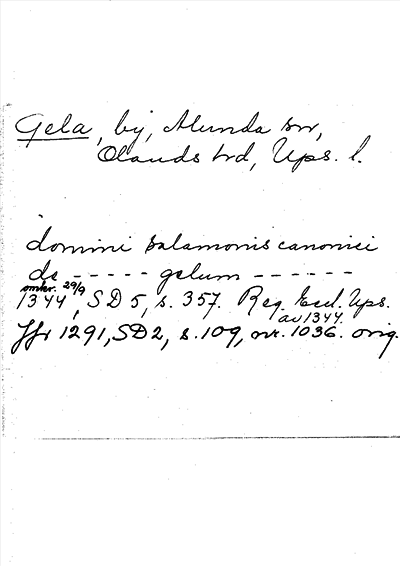 Gela, by, Alunda sn,
Olands hd, Ups. l.
domini salamonis canonici
de ----- gelum ------
omkr. 29/9
1344, SD 5, s. 357. Reg. Eccl. Ups.
av 1344.
Jfr 1291, SD2, s. 109, nr. 1036. orig.